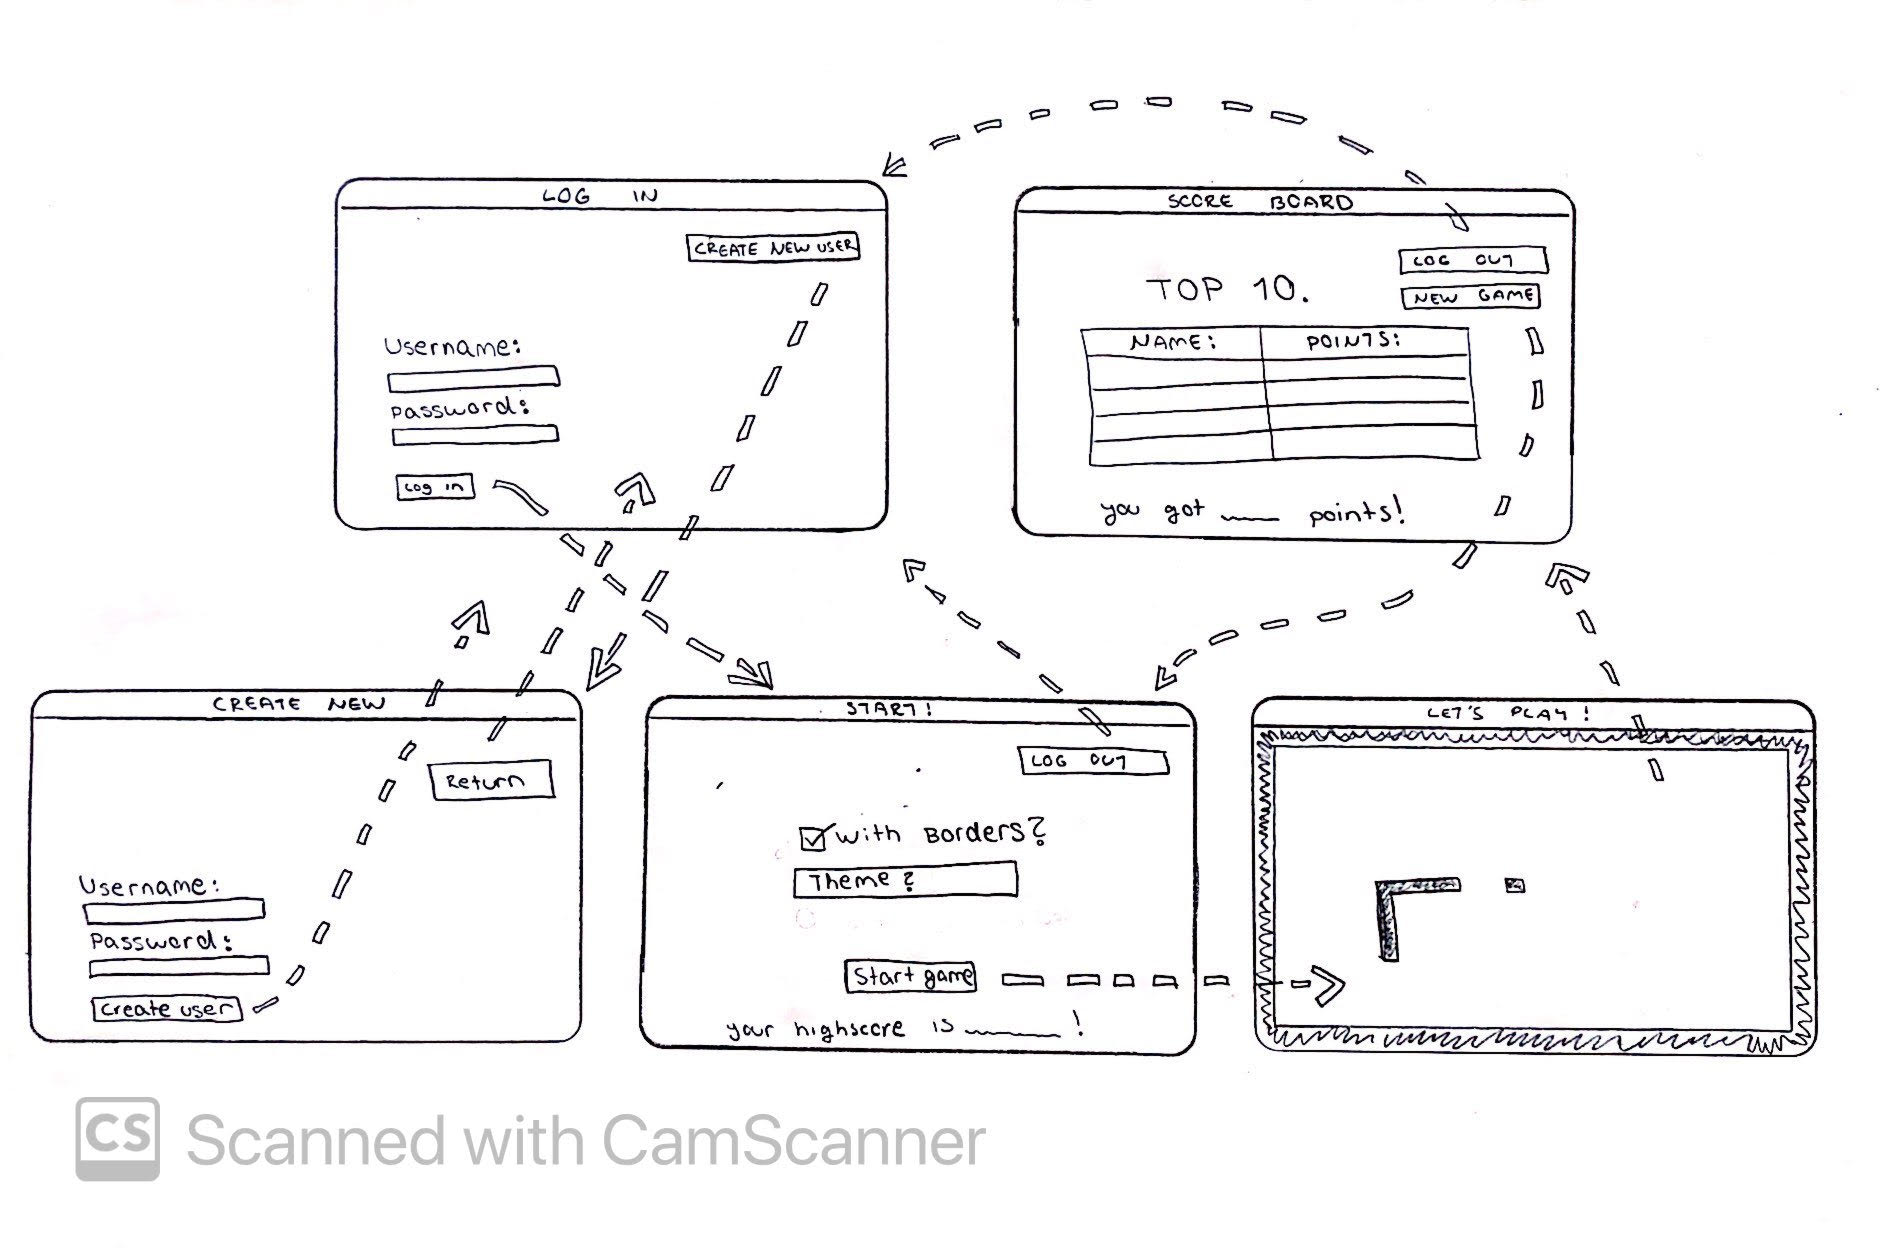 LOG IN
CREATE NEW USER
Username:
Password:
Log in
SCORE BOARD
LOG OUT
NEW GAME
TOP 10.
NAME: POINTS:
you got ____ points!
CREATE NEW
Return
Username:
Password:
Create user
START!
LOG OUT
With Borders?
Theme?
Start game
your highscore is ______!
LET'S PLAY!
CS Scanned with CamScanner